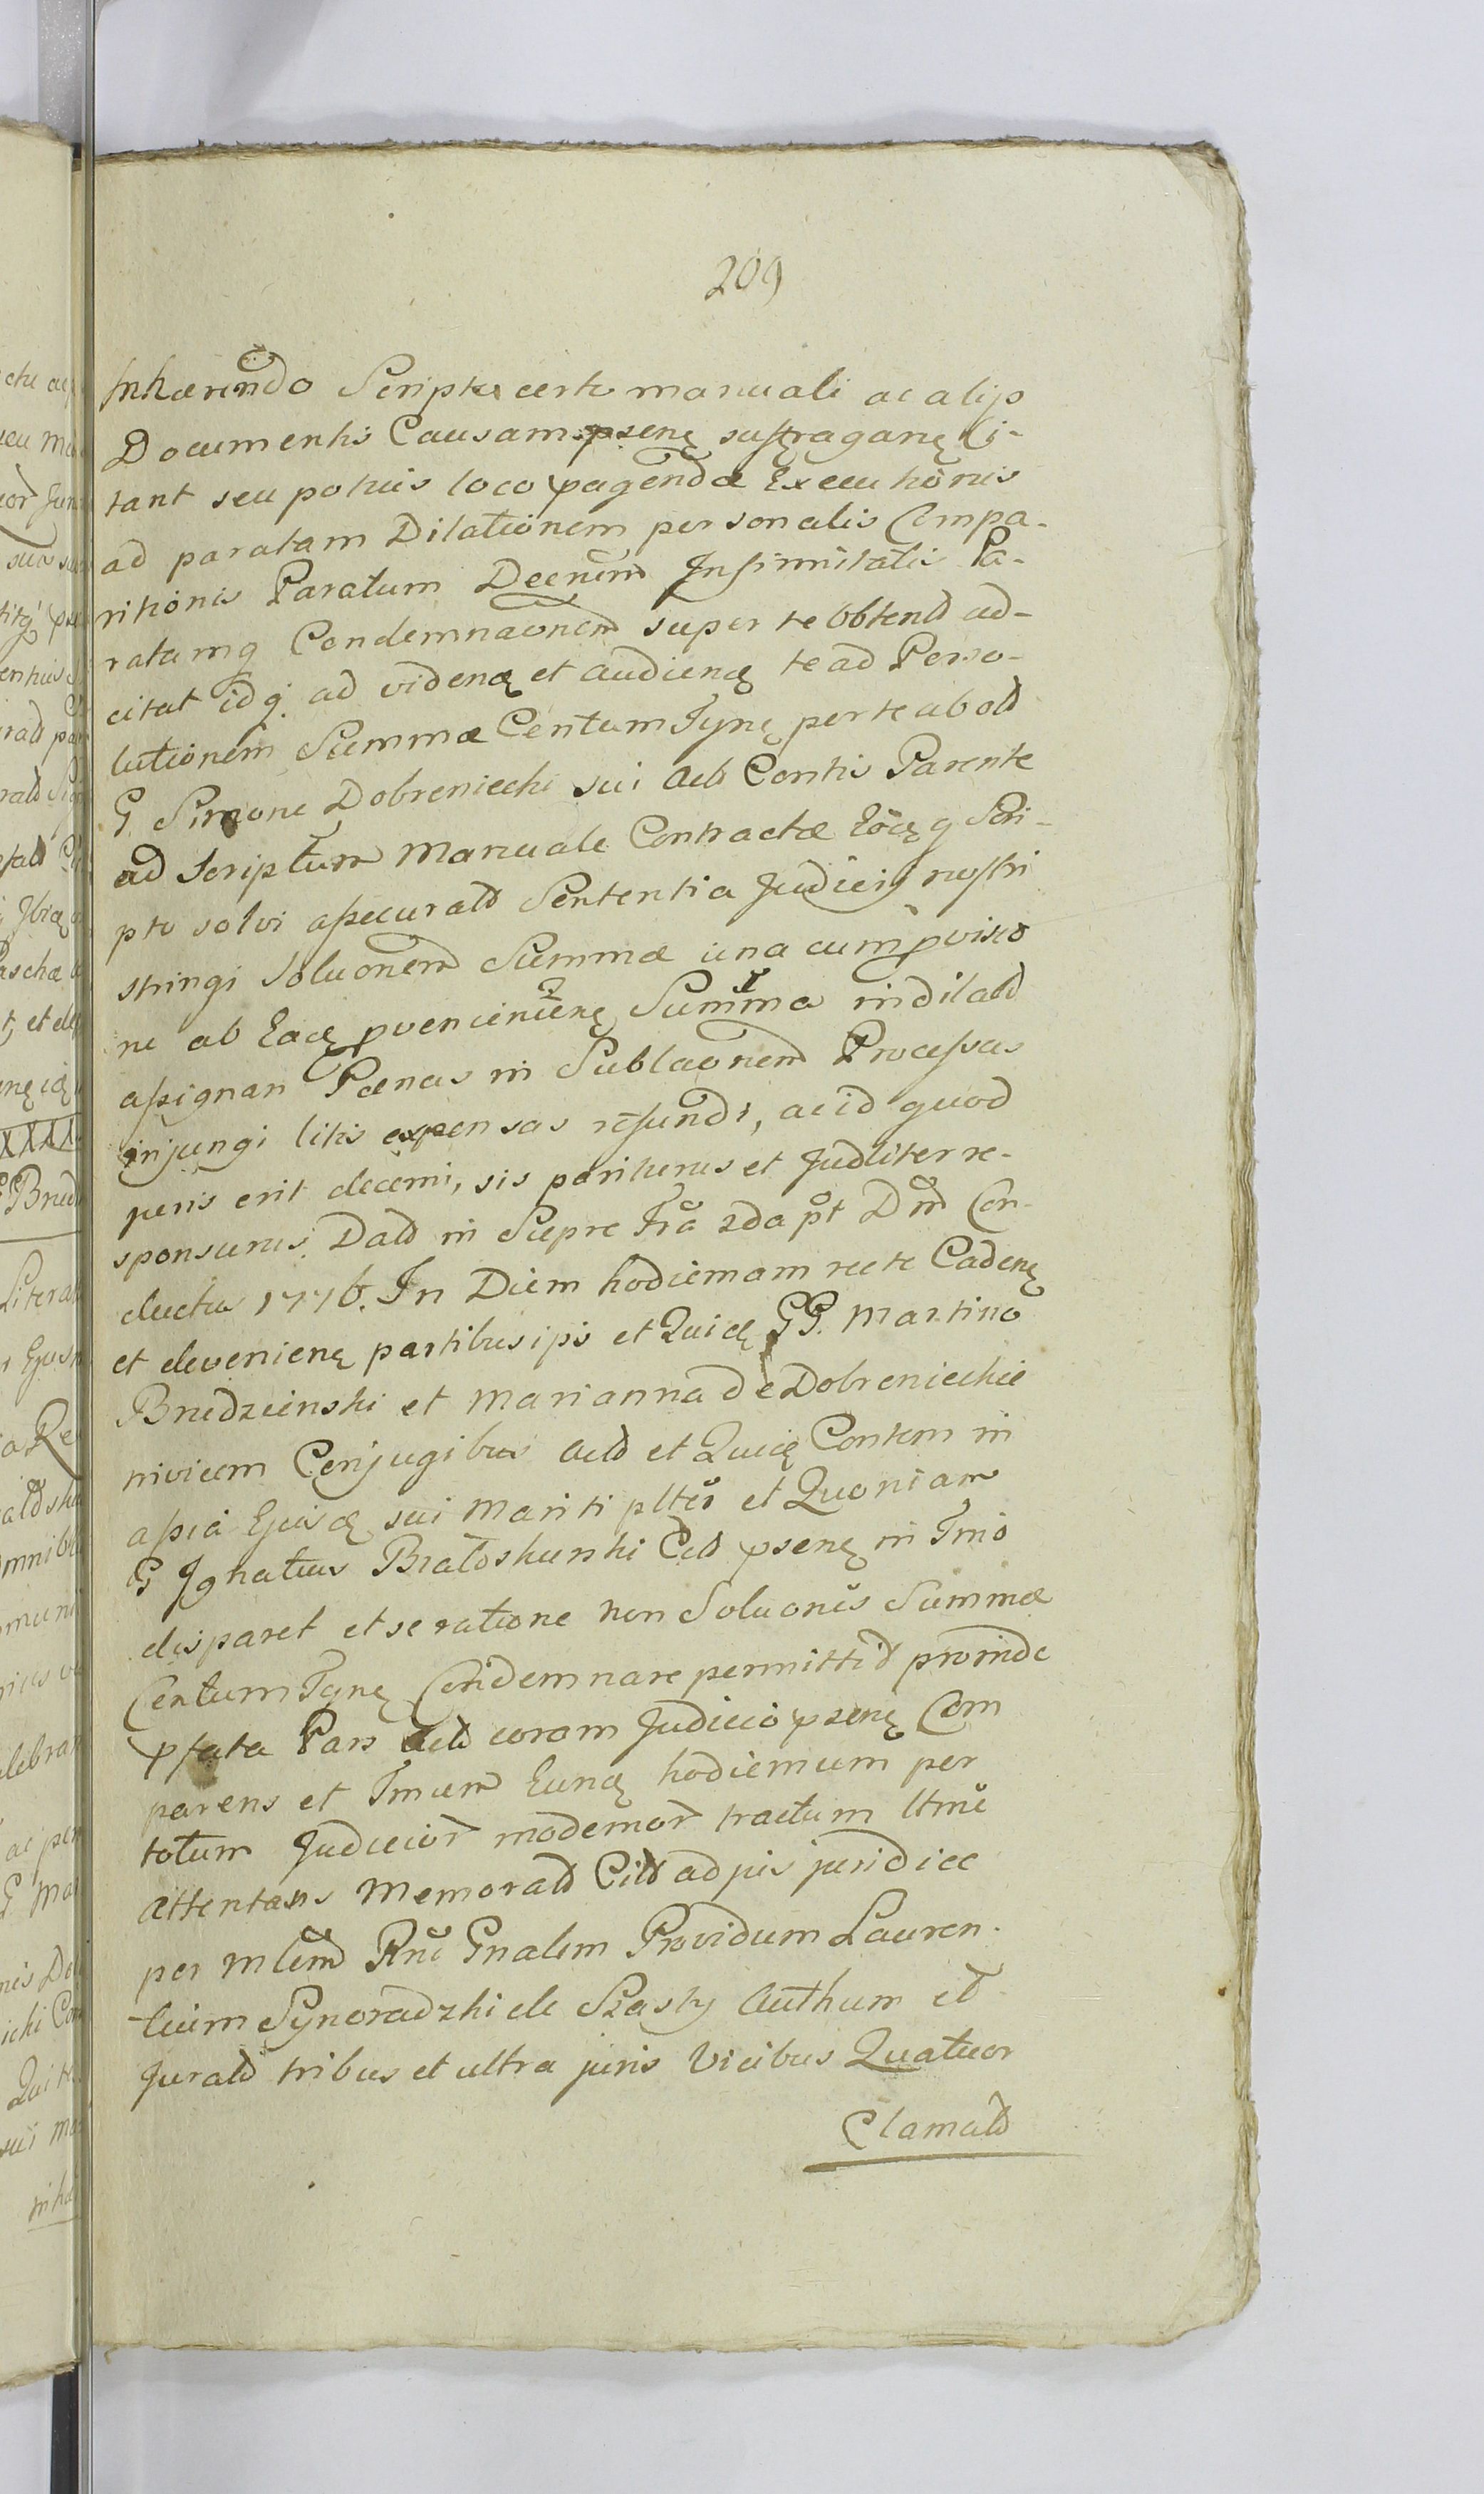 209
Inhærendo Scripto certo manuali ac alijs
Documentis Causam psenę suffraganę Ci-
tant seu potius loco pagendæ Executionis
ad paratam Dilationem personalis Compa-
ritionis Paratum Decnem Insimilatis Pa-
ratamq Condemnaonem super te obtend ad-
citat idq ad videnę et audienę te ad Perso-
lutionem Summæ Centum Tynę per te ab old
G. Simone Dobreniecki sui Acto Contis Parente
ad Scriptum Manuale Contractæ Eoęq Scri-
pto solvi assecurald Sententia Judicij nostri
stringi Soluonem Summæ una cum pvisio
ne ab Eaę pvenienienę Summa indilald
assignari Pœnas in Sublaonem Processus
injungi litis expensas refundi, ac id quod
juris erit decerni, sis pariturus et Judliter re-
sponsurus. Dald in Siepre Fra 2da pt Dm Con-
ductus 1776. In Diem hodiernam recte Cadenę
et devenienę partibus ipis et Quidę GG. Martino
Bredzienski et Marianna de Dobreniechie
nivicem Conjugibus Acto et Quidę Contem in
assia Ejusdę sui Mariti pltei et Quoniam
G Ignatius Bratoskunski Citd psenę in Tmio
disparet et se ratione non Soluonis Summæ
Centum Tynę Condemnare permittid proinde
pfata Pars Acto coram Judicio psenę Com
parens et Tmum Eundę hodiernum per
totum Judicior modernor tractum ltme
attentans Memorald Citd ad jus juridice
per mlem Rni Gnalem Providum Lauren-
tium Synoradzki de Szasty Authum et
Jurald tribus et ultra juris Vicibus Quatuor
Clamatd